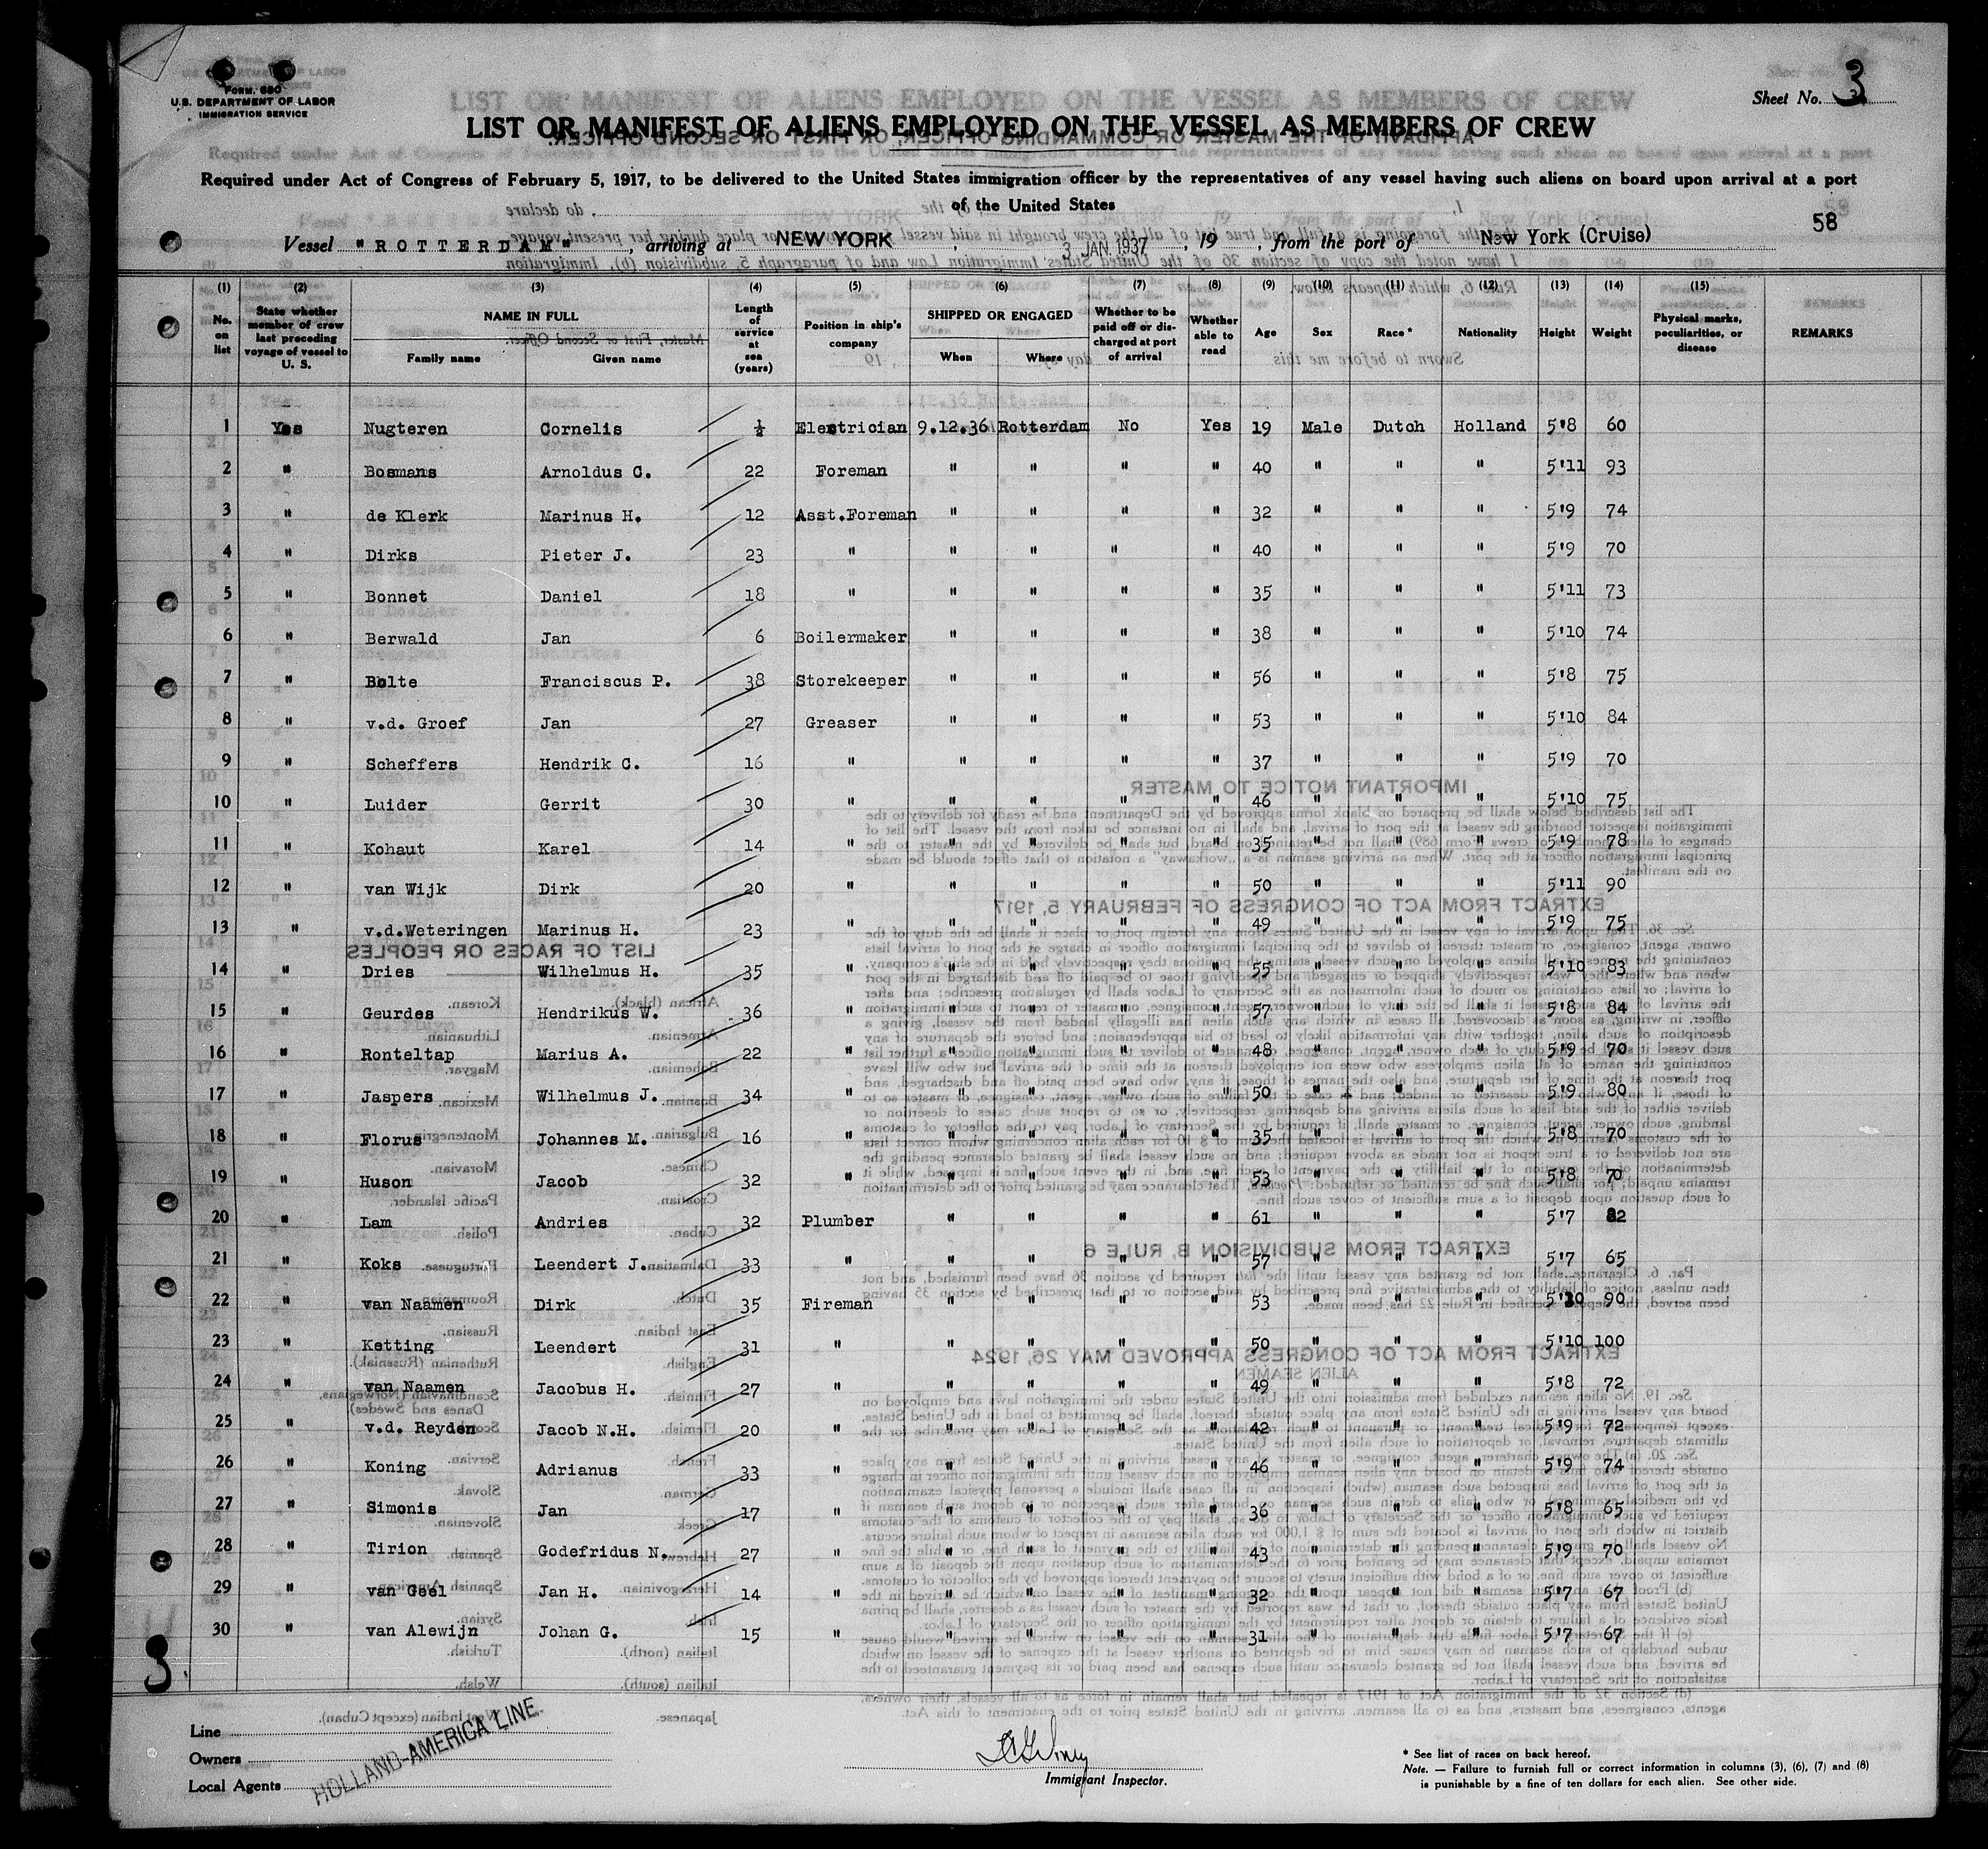 FORM. 680
U.S. DEPARTMENT OF LABOR
IMMIGRATION SERVICE
Sheet No. 3
LIST OR MANIFEST OF ALIENS EMPLOYED ON THE VESSEL AS MEMBERS OF CREW
Required under Act of Congress of February 5, 1917, to be delivered to the United States immigration officer by the representatives of any vessel having such aliens on board upon arrival at a port
of the United States
58
Vessel "ROTTERDAM", arriving at NEW YORK, 3 JAN. 1937, 19 , from the port of New York (Cruise)
(1) (2) (3) (4) (5) (6) (7) (8) (9) (10) (11) (12) (13) (14) (15)
No. on list | State whether member of crew last preceding voyage of vessel to U. S. | NAME IN FULL Family name Given name | Length of service at sea (years) | Position in ship's company | SHIPPED OR ENGAGED When Where | Whether to be paid off or discharged at port of arrival | Whether able to read | Age | Sex | Race * | Nationality | Height | Weight | Physical marks, peculiarities, or disease | REMARKS
1 Yes Nugteren Cornelis ½ Electrician 9.12.36 Rotterdam No Yes 19 Male Dutch Holland 5'8 60
2 " Bosmans Arnoldus C. 22 Foreman " " " " 40 " " " 5'11 93
3 " de Klerk Marinus H. 12 Asst.Foreman " " " " 32 " " " 5'9 74
4 " Dirks Pieter J. 23 " " " " " 40 " " " 5'9 70
5 " Bonnet Daniel 18 " " " " " 35 " " " 5'11 73
6 " Berwald Jan 6 Boilermaker " " " " 38 " " " 5'10 74
7 " Bolte Franciscus P. 38 Storekeeper " " " " 56 " " " 5'8 75
8 " v.d. Groef Jan 27 Greaser " " " " 53 " " " 5'10 84
9 " Scheffers Hendrik C. 16 " " " " " 37 " " " 5'9 70
10 " Luider Gerrit 30 " " " " " 46 " " " 5'10 75
11 " Kohaut Karel 14 " " " " " 35 " " " 5'9 78
12 " van Wijk Dirk 20 " " " " " 50 " " " 5'11 90
13 " v.d.Weteringen Marinus H. 23 " " " " " 49 " " " 5'9 75
14 " Dries Wilhelmus H. 35 " " " " " 55 " " " 5'10 83
15 " Geurdes Hendrikus W. 36 " " " " " 57 " " " 5'8 84
16 " Ronteltap Marius A. 22 " " " " " 48 " " " 5'9 70
17 " Jaspers Wilhelmus J. 34 " " " " " 50 " " " 5'9 80
18 " Florus Johannes M. 16 " " " " " 35 " " " 5'8 70
19 " Huson Jacob 32 " " " " " 53 " " " 5'8 70
20 " Lam Andries 32 Plumber " " " " 61 " " " 5'7 82
21 " Koks Leendert J. 33 " " " " " 57 " " " 5'7 65
22 " van Naamen Dirk 35 Fireman " " " " 53 " " " 5'10 90
23 " Ketting Leendert 31 " " " " " 50 " " " 5'10 100
24 " van Naamen Jacobus H. 27 " " " " " 49 " " " 5'8 72
25 " v.d. Reyden Jacob N.H. 20 " " " " " 42 " " " 5'9 72
26 " Koning Adrianus 33 " " " " " 46 " " " 5'9 74
27 " Simonis Jan 17 " " " " " 36 " " " 5'8 65
28 " Tirion Godefridus N. 27 " " " " " 43 " " " 5'9 70
29 " van Geel Jan H. 14 " " " " " 32 " " " 5'7 67
30 " van Alewijn Johan G. 15 " " " " " 31 " " " 5'7 67
3.
Line
Owners
Local Agents
HOLLAND-AMERICA LINE
Immigrant Inspector.
* See list of races on back hereof.
Note. — Failure to furnish full or correct information in columns (3), (6), (7) and (8)
is punishable by a fine of ten dollars for each alien. See other side.